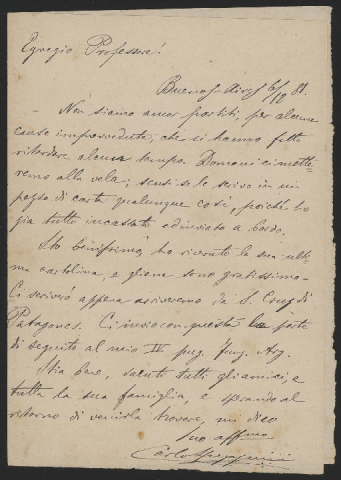 Egregio Professore!
Buenos-Aires 6/12 81.
Non siamo ancor partiti, per alcune
cause imprevvedute, che si hanno fatto
ritardare alcun tempo. Domani ci mette-
remo alla vela; scusi se le scrivo in un
pezzo di carta qualunque così, poiché ho
già tutto incassato ed inviato a bordo.
Sto benissimo, ho ricevuto la sua ulti-
ma cartolina, e gliene sono gratissimo.
Ci scriverò appena arriveremo da S. Cruz di
Patagones. Ci invio con questa la parte
di seguito al mio IV pug. Fung. Arg.
Stia bene, saluti tutti gli amici, e
tutta la sua famiglia, e sperando al
ritorno di venirla trovare, mi dico
Suo affmo
Carlo Spegazzini